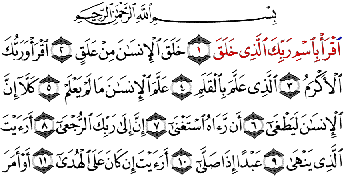 بِسْمِ ٱللَّهِ ٱلرَّحْمَٰنِ ٱلرَّحِيمِ
ٱقْرَأْ بِٱسْمِ رَبِّكَ ٱلَّذِى خَلَقَ ١ خَلَقَ ٱلْإِنسَٰنَ مِنْ عَلَقٍ ٢ ٱقْرَأْ وَرَبُّكَ
ٱلْأَكْرَمُ ٣ ٱلَّذِى عَلَّمَ بِٱلْقَلَمِ ٤ عَلَّمَ ٱلْإِنسَٰنَ مَا لَمْ يَعْلَمْ ٥ كَلَّآ إِنَّ
ٱلْإِنسَٰنَ لَيَطْغَىٰٓ ٦ أَن رَّءَاهُ ٱسْتَغْنَىٰٓ ٧ إِنَّ إِلَىٰ رَبِّكَ ٱلرُّجْعَىٰٓ ٨ أَرَءَيْتَ
ٱلَّذِى يَنْهَىٰ ٩ عَبْدًا إِذَا صَلَّىٰٓ ١٠ أَرَءَيْتَ إِن كَانَ عَلَى ٱلْهُدَىٰٓ ١١ أَوْ أَمَرَ